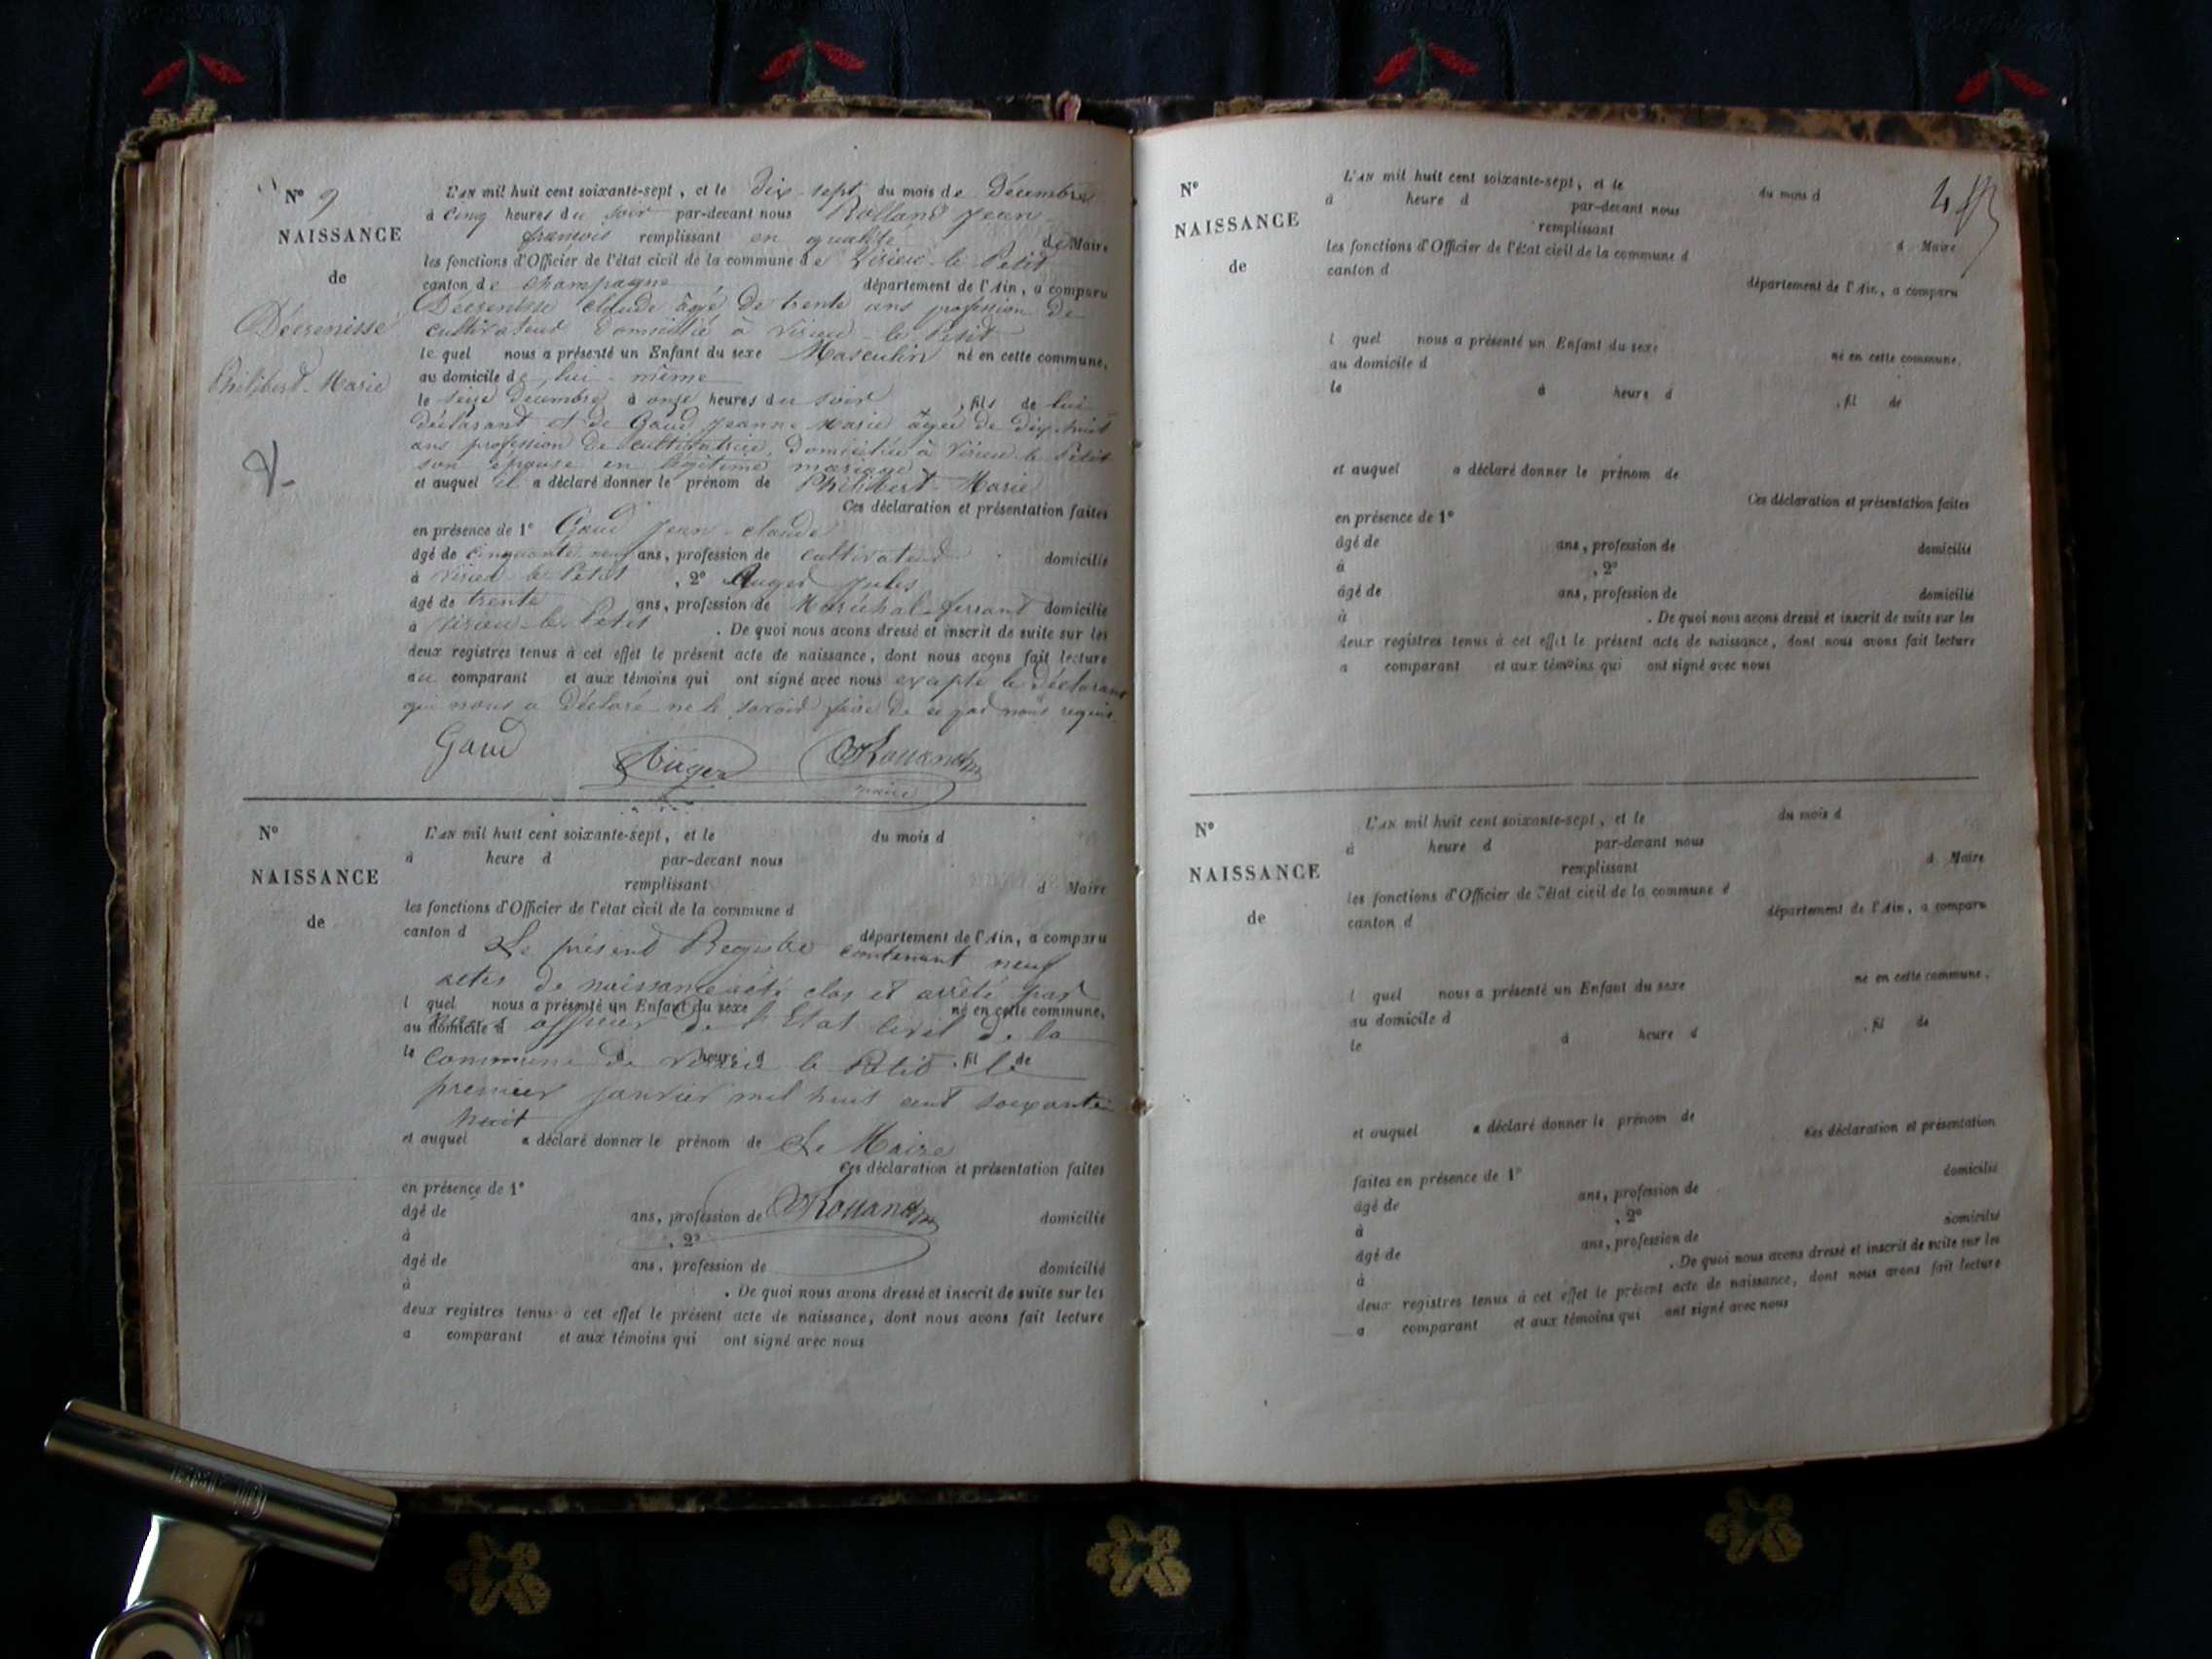 N° 9
NAISSANCE
de
Décrenisse
Philibert-Marie
L'AN mil huit cent soixante-sept, et le dix-sept du mois de Décembre
à cinq heures du soir par-devant nous Rolland Jean
françois remplissant en qualité de Maire
les fonctions d'Officier de l'état civil de la commune de Virieu-le-Petit
canton de Champagne département de l'Ain, a comparu
Décrenisse Claude âgé de trente ans profession de
cultivateur domicilié à Virieu-le-Petit
le quel nous a présenté un Enfant du sexe Masculin né en cette commune,
au domicile de lui-même
le seize décembre à onze heures du soir, fils de lui
déclarant et de Gaud Jeanne-Marie âgée de dix-huit
ans profession de cultivatrice, domiciliée à Virieu-le-Petit
son épouse en légitime mariage
et auquel il a déclaré donner le prénom de Philibert-Marie
Ces déclaration et présentation faites
en présence de 1° Gaud Jean-Claude
âgé de cinquante neuf ans, profession de cultivateur domicilié
à Virieu-le-Petit, 2° Auger Jules
âgé de trente ans, profession de Maréchal-ferrant domicilié
à Virieu-le-Petit. De quoi nous avons dressé et inscrit de suite sur les
deux registres tenus à cet effet le présent acte de naissance, dont nous avons fait lecture
au comparant et aux témoins qui ont signé avec nous excepté le déclarant
qui nous a déclaré ne le savoir faire de ce par nous requis
Gaud Auger Rolland
maire
N°
NAISSANCE
de
L'AN mil huit cent soixante-sept, et le du mois d
à heure d par-devant nous
remplissant d Maire
les fonctions d'Officier de l'état civil de la commune d
canton d département de l'Ain, a comparu
Le présent Registre contenant neuf
actes de naissance été clos et arrêté par
l quel nous a présenté un Enfant du sexe né en cette commune,
au domicile d
officier de l'Etat Civil de la
le à heure d, fil de
Commune de Virieu le Petit le
premier janvier mil huit cent soixante
huit
et auquel a déclaré donner le prénom de Le Maire
Ces déclaration et présentation faites
en présence de 1°
âgé de ans, profession de domicilié
Rolland
à , 2°
âgé de ans, profession de domicilié
à . De quoi nous avons dressé et inscrit de suite sur les
deux registres tenus à cet effet le présent acte de naissance, dont nous avons fait lecture
a comparant et aux témoins qui ont signé avec nous
N°
NAISSANCE
de
L'AN mil huit cent soixante-sept, et le du mois d
à heure d par-devant nous
remplissant d Maire
les fonctions d'Officier de l'état civil de la commune d
canton d département de l'Ain, a comparu
l quel nous a présenté un Enfant du sexe né en cette commune,
au domicile d
le à heure d , fil de
et auquel a déclaré donner le prénom de
Ces déclaration et présentation faites
en présence de 1°
âgé de ans, profession de domicilié
à , 2°
âgé de ans, profession de domicilié
à . De quoi nous avons dressé et inscrit de suite sur les
deux registres tenus à cet effet le présent acte de naissance, dont nous avons fait lecture
a comparant et aux témoins qui ont signé avec nous
N°
NAISSANCE
de
L'AN mil huit cent soixante-sept, et le du mois d
à heure d par-devant nous
remplissant d Maire
les fonctions d'Officier de l'état civil de la commune d
canton d département de l'Ain, a comparu
l quel nous a présenté un Enfant du sexe né en cette commune,
au domicile d
le à heure d , fil de
et auquel a déclaré donner le prénom de
Ces déclaration et présentation
faites en présence de 1° domicilié
âgé de ans, profession de
à , 2°
âgé de ans, profession de domicilié
à . De quoi nous avons dressé et inscrit de suite sur les
deux registres tenus à cet effet le présent acte de naissance, dont nous avons fait lecture
a comparant et aux témoins qui ont signé avec nous